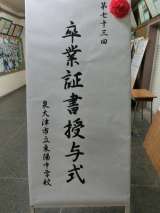 第七十三回
卒業証書授与式
泉大津市立東陽中学校